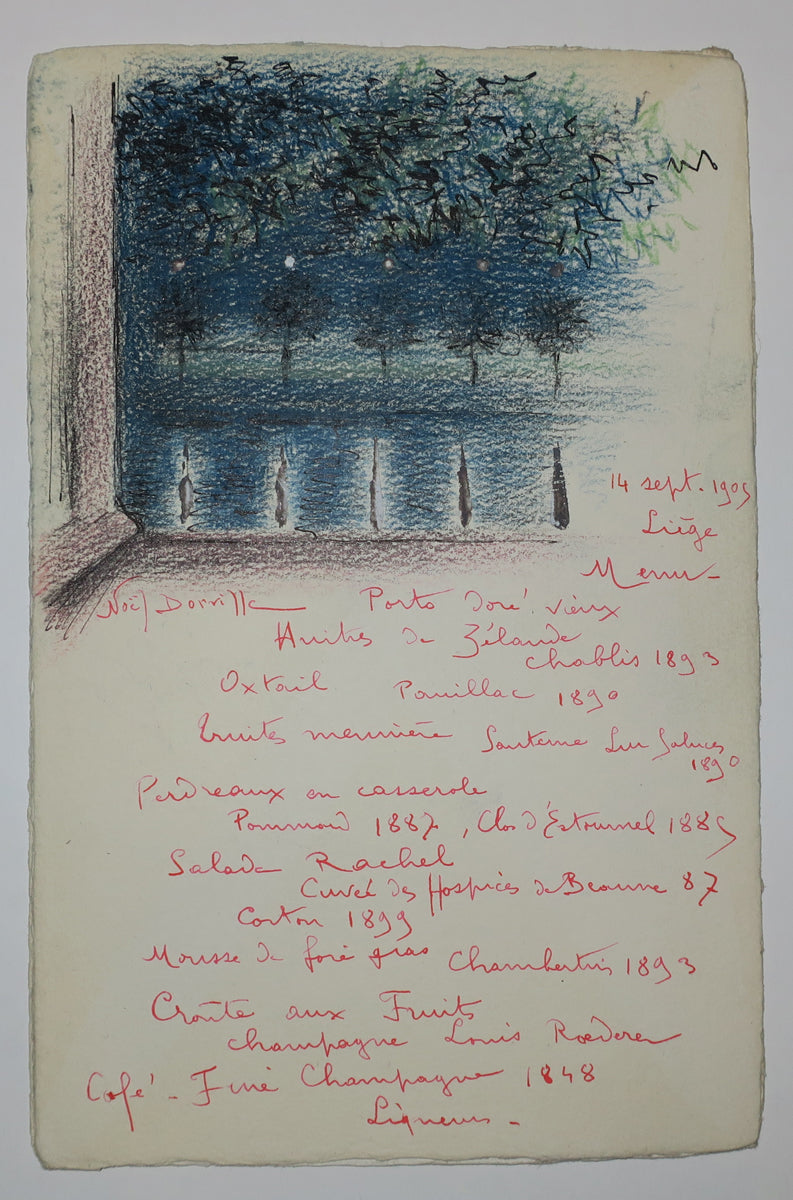 14 sept. 1905
Liège
Menu -
Noël Dorville
Porto doré vieux
Huitres de Zélande
Chablis 1893
Oxtail Pauillac 1890
Truites meunière Sauterne Lur Saluces
1890
Perdreaux en casserole
Pommard 1887, Clos d'Estournel 1885
Salade Rachel
Cuveé des Hospices de Beaune 87
Corton 1899
Mousse de foie gras Chambertin 1893
Croûte aux Fruits
champagne Louis Rœderer
Café - Fine Champagne 1848
Liqueurs -